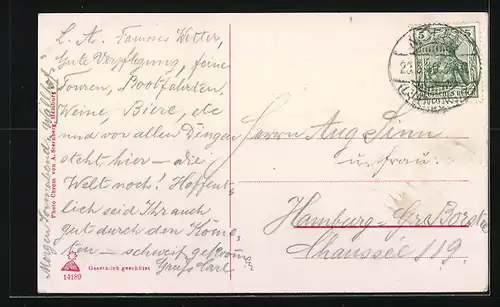 L. A. Famoses Wetter,
Gute Verpflegung, feine
Touren, Bootfahrten,
Weine, Biere, etc
und vor allen Dingen
steht hier – die
Welt noch! Hoffent-
lich seid Ihr auch
gut durch den Kome-
ten – schweif gekommen
Gruss Carl
Morgen Sonnabend
Photo Chrom von A. Sternberg, Hamburg
14189
Gesetzlich geschützt
5 5
DEUTSCHES REICH
Herrn Aug. Sinn
u. Frau.
Hamburg – Gr. Borstel
Chaussée 119.